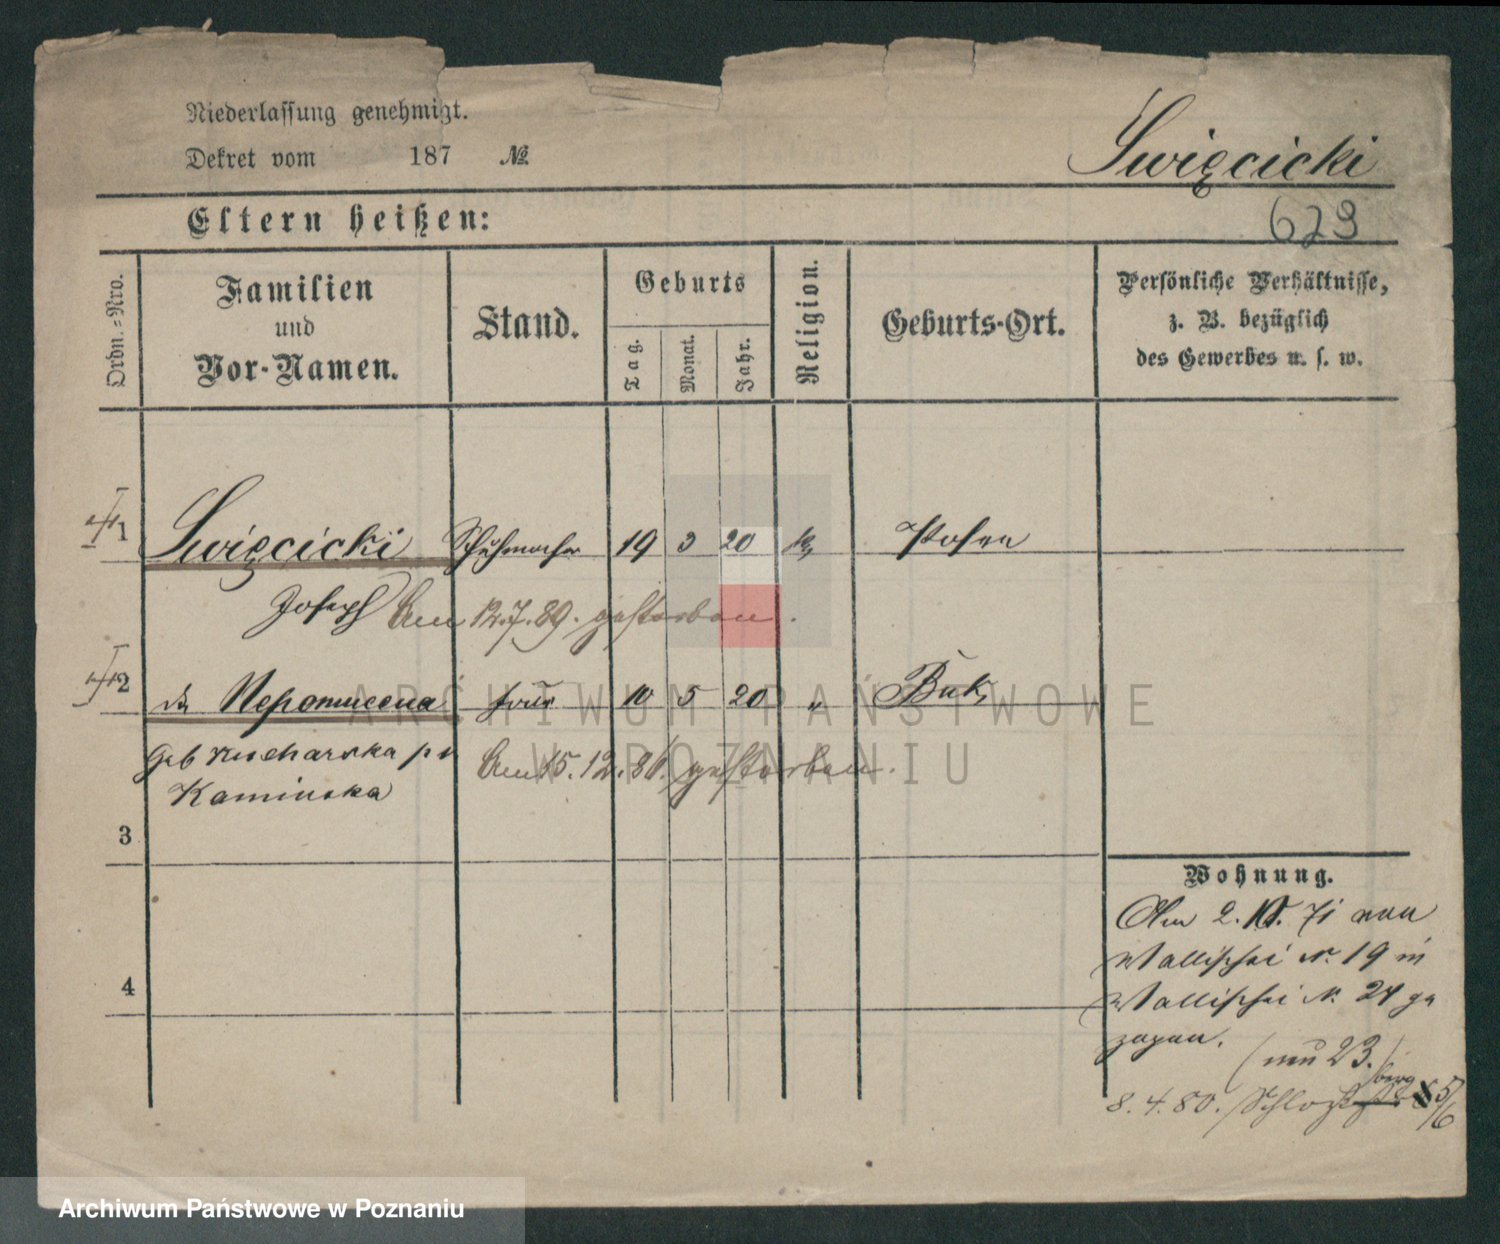 Niederlassung genehmigt.
Dekret vom 187 №
Swięcicki
Eltern heißen:
623
Ordn.-Nro.
Familien
und
Vor-Namen.
Stand.
Geburts
Tag.
Monat.
Jahr.
Religion.
Geburts-Ort.
Persönliche Verhältnisse,
z. B. bezüglich
des Gewerbes u. s. w.
1 Swięcicki Schuhmacher 19 3 20 k Posen
Joseph Am 12.7.89. gestorben.
2 Nepomucena Frau 10 5 20 " Buk
geb Kucharska
Kaminska
Am 15.12.86. gestorben.
3
4
Wohnung.
Am 2. 10. 71 von
Wallischei N. 19 in
Wallischei N. 24 ge
zogen.
(neu 23.)
8. 4. 80. Schloß berg 5/6
ARCHIWUM PAŃSTWOWE
W POZNANIU
Archiwum Państwowe w Poznaniu